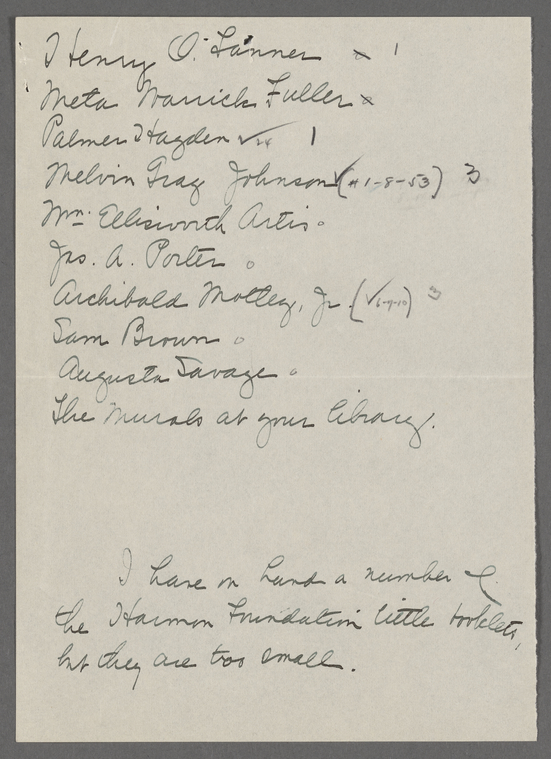 Henry O. Tanner x 1
Meta Warrick Fuller x
Palmer Hayden ✓ 1
Melvin Gray Johnson ✓ (#1-8-53) 3
Wm. Ellisworth Artis o
Jas. A. Porter o
Archibald Motley, Jr. (✓6-9-10) 3
Sam Brown o
Augusta Savage o
The Murals at your library.
I have on hand a number of
the Harmon Foundation little booklets,
but they are too small.